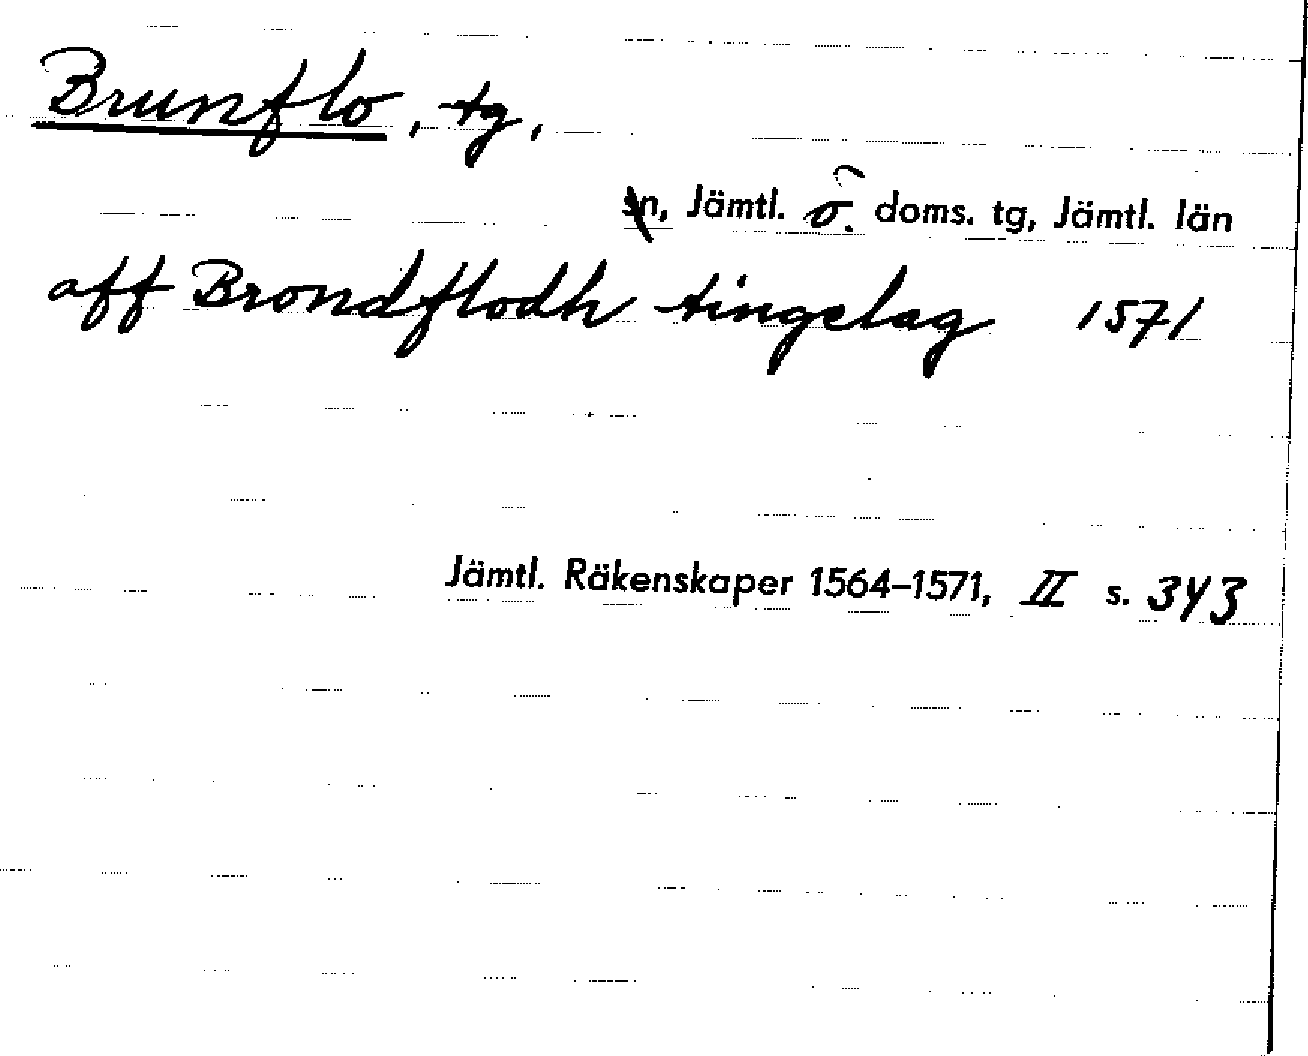 Brunflo, tg,
sn, Jämtl. ö. doms. tg, Jämtl. län
aff Brondflodh tingelag 1571
Jämtl. Räkenskaper 1564–1571, II s. 343